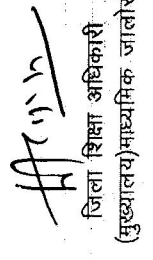 जिला शिक्षा अधिकारी
(मुख्यालय)माध्यमिक जालोर